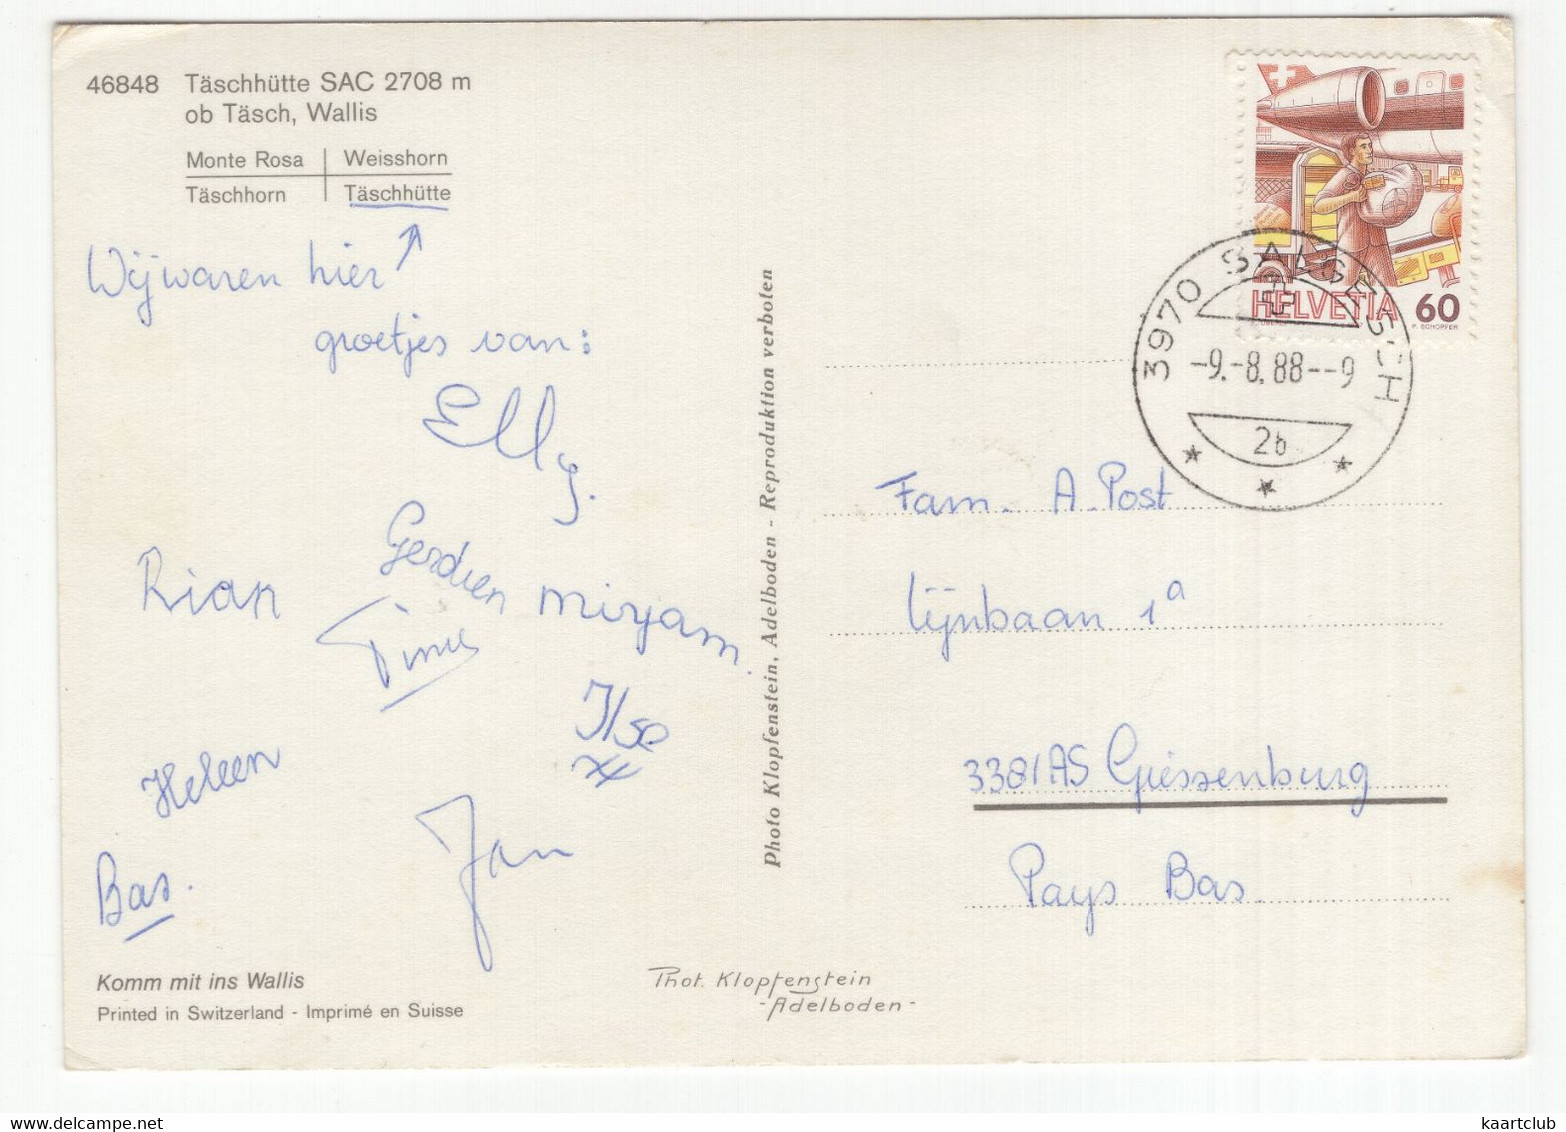 46848 Täschhütte SAC 2708 m
ob Täsch, Wallis
Monte Rosa | Weisshorn
Täschhorn | Täschhütte
Wij waren hier
groetjes van:
Elly.
Gerdien
Rian
miryam.
Tinus
Ilse
Heleen
Jan
Bas.
Komm mit ins Wallis
Printed in Switzerland - Imprimé en Suisse
Phot. Klopfenstein
- Adelboden -
Photo Klopfenstein, Adelboden - Reproduktion verboten
HELVETIA 60
P. SCHOPFER
3970 SALGESCH
-9.-8.88--9
2b
Fam. A. Post
Lijnbaan 1a
3381AS Giessenburg
Pays Bas.
www.delcampe.net
kaartclub